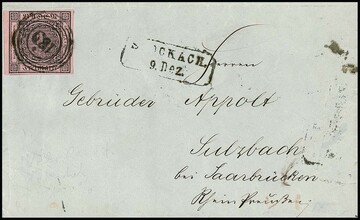 STOCKACH.
9. Dez.
Herrn
Gebrüder Appolt
Sulzbach
bei Saarbrücken
Rhein Preußen.